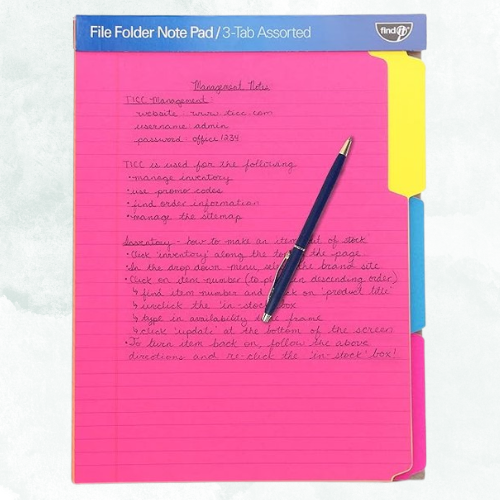 File Folder Note Pad / 3-Tab Assorted
find it
Management Notes
TICC Management:
website: www.ticc.com
username: admin
password: office1234
TICC is used for the following:
•manage inventory
•use promo codes
•find order information
•manage the sitemap
Inventory - how to make an item out of stock
•Click 'inventory' along the top of the page.
•In the drop down menu, select the brand site
•Click on item number (to put in descending order)
↳ find item number and click on 'product title'
↳ unclick the 'in-stock' box
↳ type in availability frame
↳ click 'update' at the bottom of the screen
•To turn item back on, follow the above
directions and re-click the 'in-stock' box!